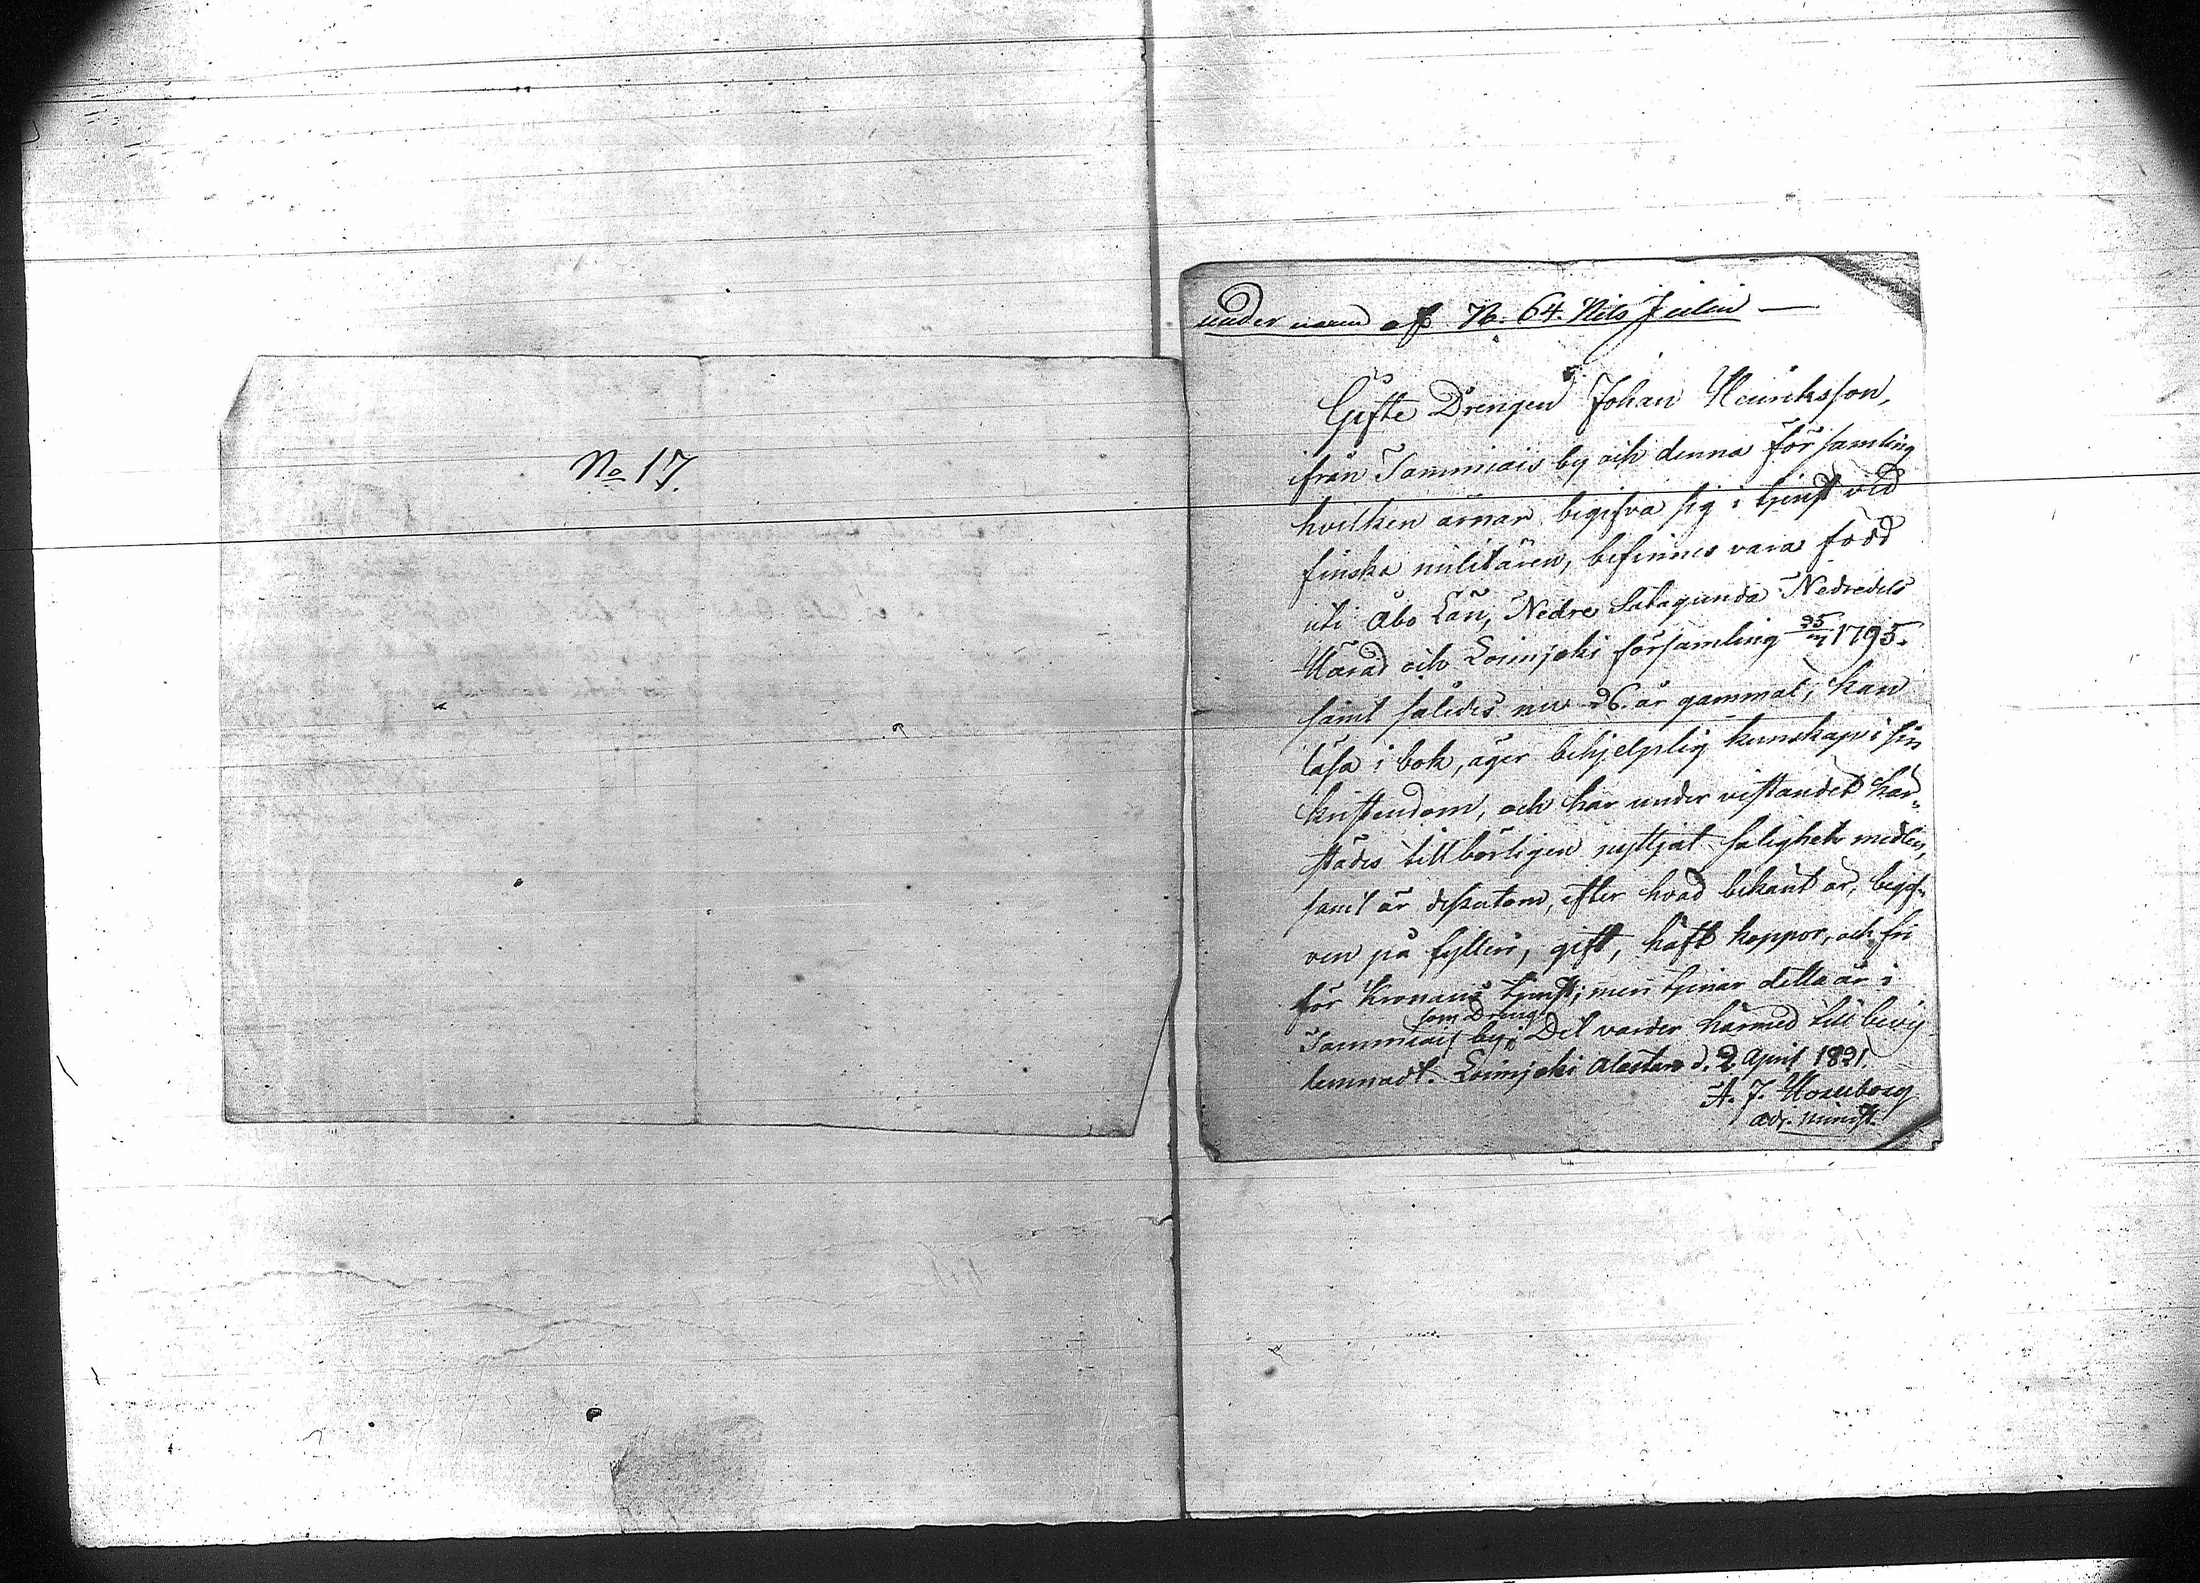 No 17.
under namn af N. 64. Nils Julin —
Gifte Drengen Johan Henriksson,
ifrån Tammiais by och denna församling
hvilken ärnar begifva sig i tjenst vid
finska militären, befinnes vara född
uti Åbo Län, Nedre Satagunda Nedredels
Härad och Loimjoki församling 25/ 1795.
samt således nu 26 år gammal; kan
läsa i bok, äger behjelplig kunskap i sin
kristendom, och har under vistandet här-
städes tillbörligen nyttjat salighets medlen,
samt är dessutom, efter hvad bekant är, begif-
ven på fylleri, gift, haft koppor, och fri
för Kronans tjenst; men tjenar detta år i
Tammiais by som Dreng. Det varder härmed till bevis
lemnadt. Loimjoki Alastaro d. 2 April 1821.
A. J. Moseberg
adj. minist.